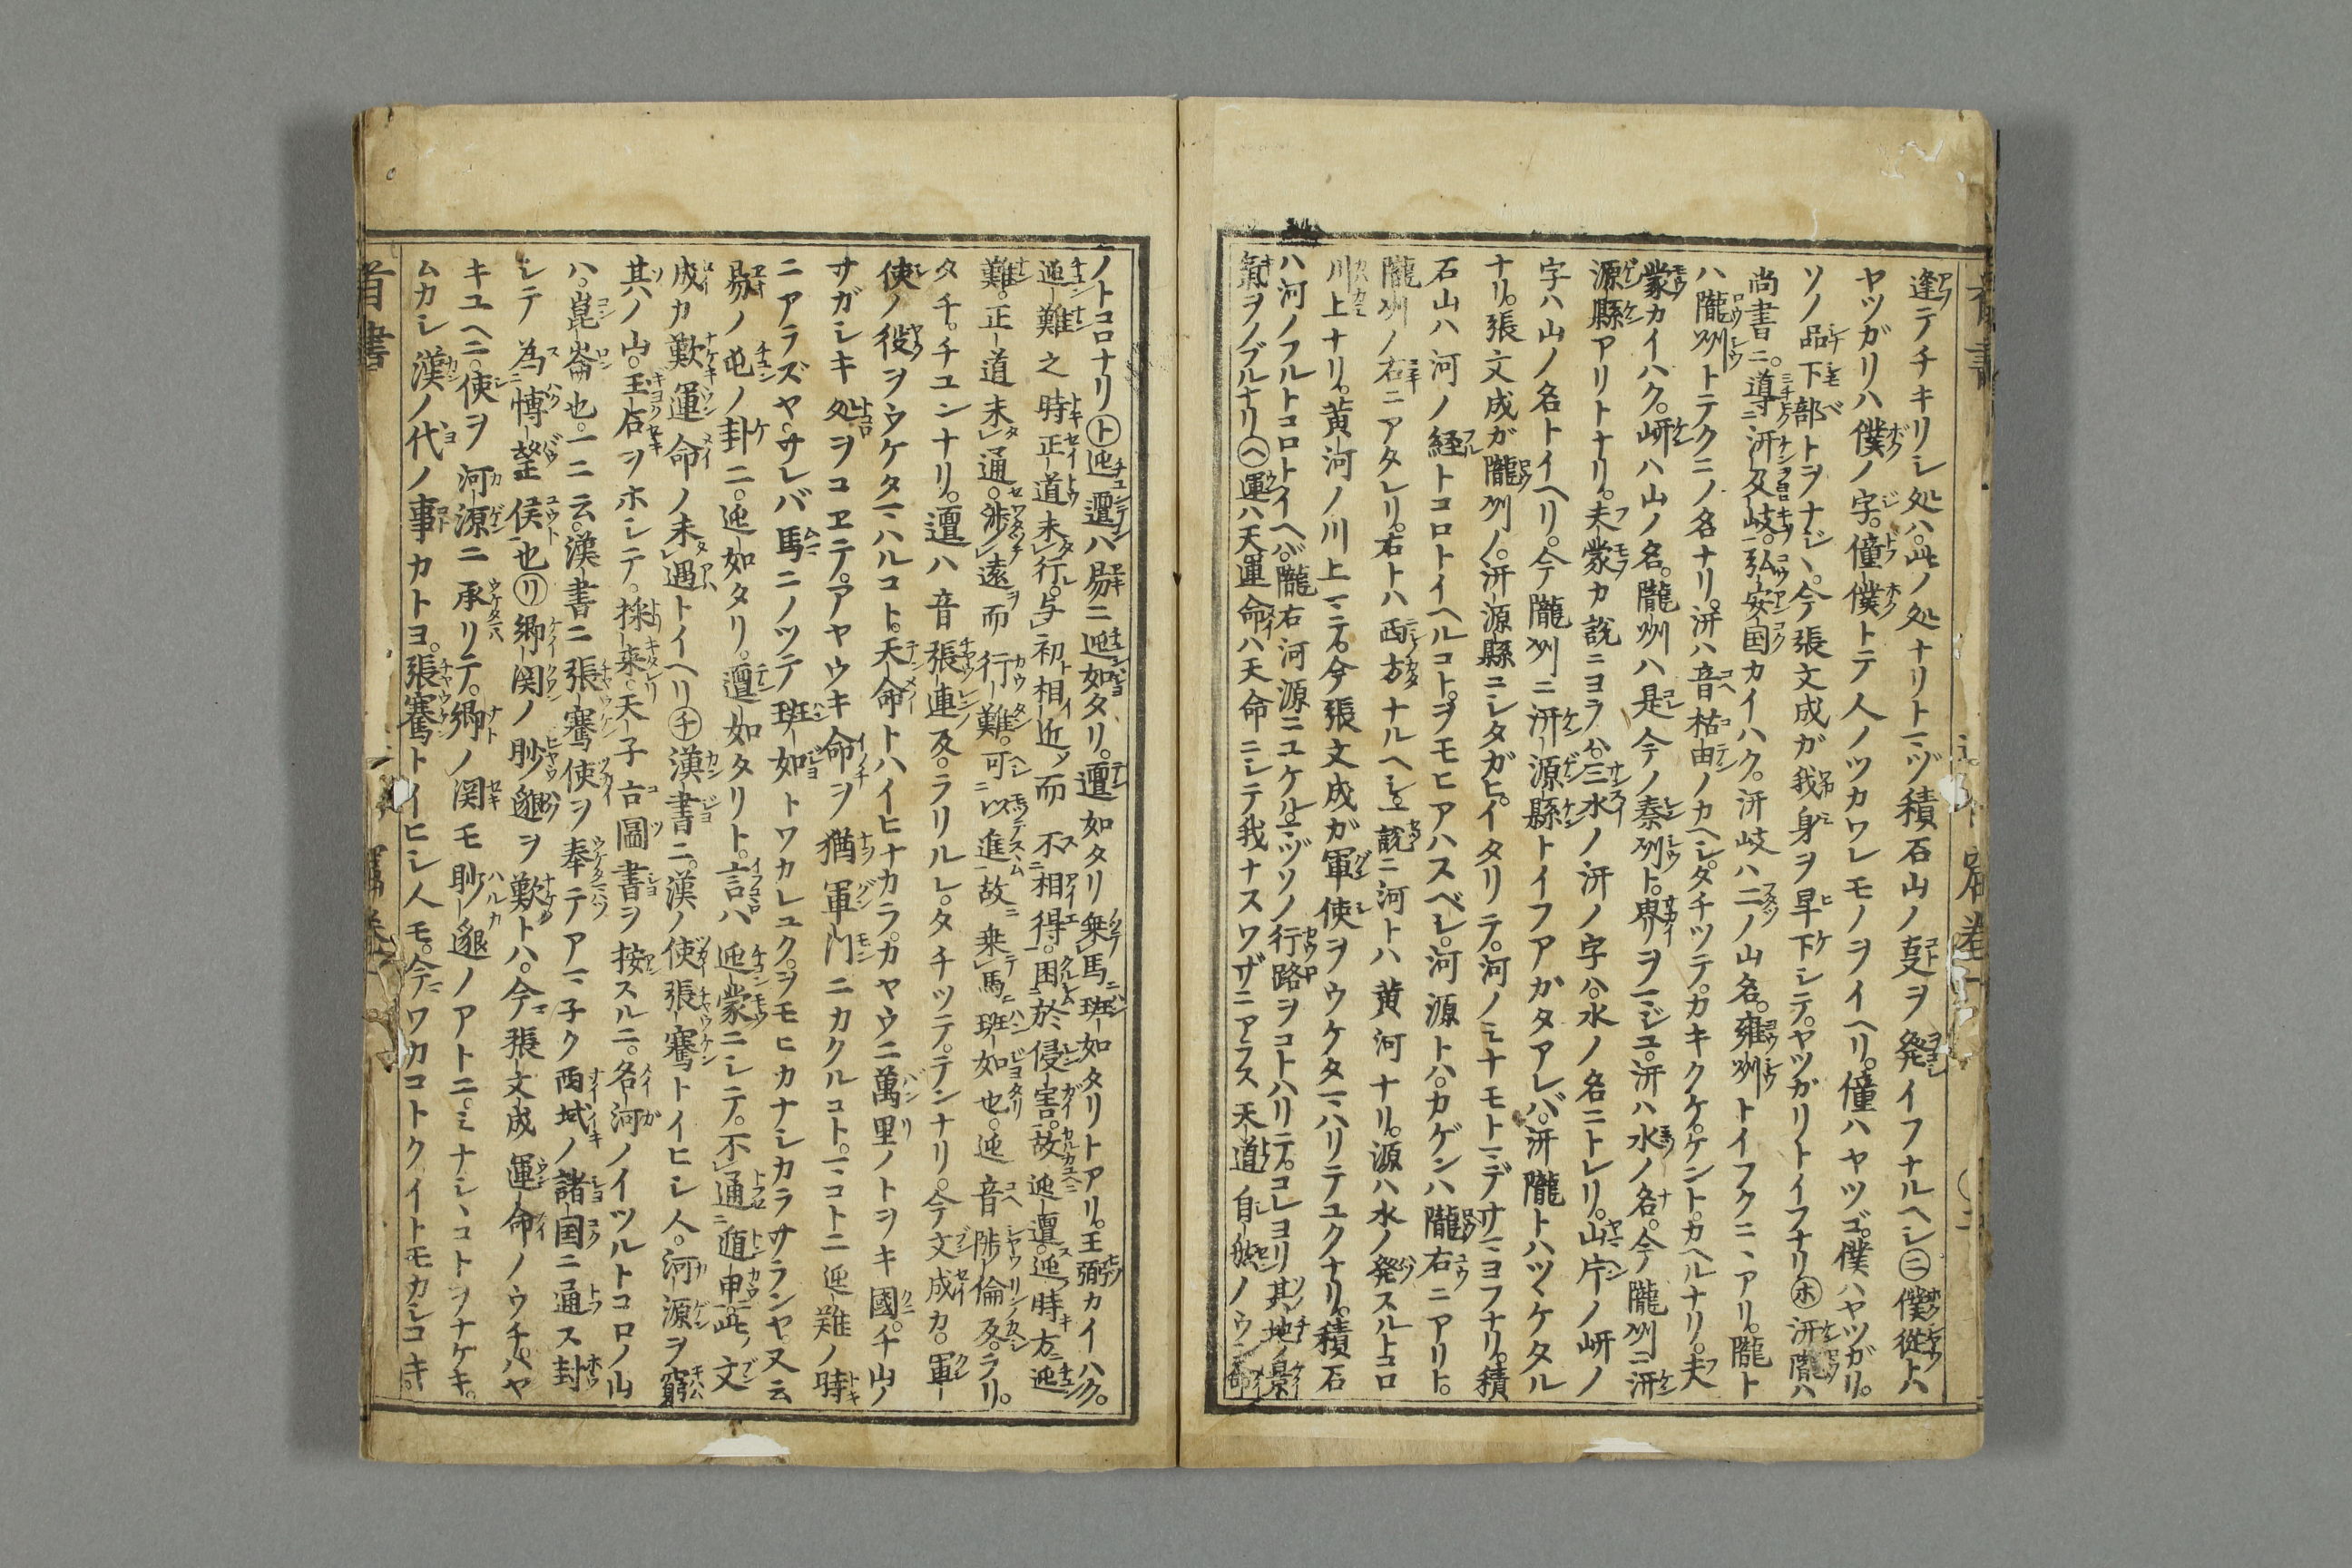 逢テチキリシ処ハ。此ノ処ナリトマヅ積石山ノ㕝ヲ発イフナルヘシ㊁僕從トハ
ヤツガリハ僕ノ字。僮僕トテ人ノツカワレモノヲイヘリ。僮ハヤツゴ。僕ハヤツガリ。
ソノ品下部トヲナジヽ。今張文成ガ我身ヲ早下シテ。ヤツガリトイフナリ㋭汧隴ハ
尚書ニ。導汧及岐。弘安国カイハク。汧岐ハ二ノ山名。雍州トイフクニヽアリ。隴ト
ハ隴州トテクニノ名ナリ。汧ハ音枯由ノカヘシ。タチツテ。カキクケ。ケント。カヘルナリ。夫
蒙カイハク。岍ハ山ノ名。隴州ハ是今ノ秦州ト。界ヲマジユ。汧ハ水ノ名。今隴州ニ汧
源縣アリトナリ。夫蒙カ説ニヨラハ。三水ノ汧ノ字ハ。水ノ名ニトレリ。山片ノ岍ノ
字ハ山ノ名トイヘリ。今隴州ニ汧源縣トイフアガタアレバ。汧隴トハツヾケタル
ナリ。張文成ガ隴州ノ。汧源縣ニシタガヒ。イタリテ。河ノミナモトマデサマヨフナリ。積
石山ハ河ノ経トコロトイヘルコト。ヲモヒアハスベシ。河源トハ。カゲンハ隴右ニアリト。
隴州ノ右ニアタレリ。右トハ西方ナルヘシ。説ニ河トハ黄河ナリ。源ハ水ノ発スルトコロ
川上ナリ。黄河ノ川上マテ。今張文成ガ軍使ヲウケタマハリテユクナリ。積石
ハ河ノフルトコロトイヘバ。隴右河源ニユケル。マヅソノ行路ヲコトハリテ。コレヨリ其地ノ景
氣ヲノブルナリ㋬運ハ天運命ハ天命ニシテ我ナスワザニアラス天道自然ノウン命
ノトコロナリ㋣迍邅ハ易ニ迍如タリ。邅如タリ乗馬班如タリトアリ。王弼カイハク。
迍難之時正道未行。与初相近而不相得。困於侵害。故迍邅。迍時方迍
難。正道未通。渉遠而行難。可以進故乗馬班如也。迍音陟倫反。ラリ。
タチ。チユンナリ。邅ハ音張連反。ラリルレ。タチツテ。テンナリ。今文成カ。軍
使ノ役ヲウケタマハルコト。天命トハイヒナカラ。カヤウニ萬里ノトヲキ國。千山ノ
サガシキ処ヲコヱテ。アヤウキ命ヲ猶軍門ニカクルコト。マコトニ迍難ノ時
ニアラズヤ。サレバ馬ニノツテ班如トワカレユク。ヲモヒカナシカラサランヤ又云
易ノ屯ノ卦ニ。迍如タリ。邅如タリト。言ハ迍蒙ニシテ。不通ニ遁申。此ノ文
成カ歎運命ノ未遇トイヘリ㋠漢書ニ。漢ノ使張騫トイヒシ人。河源ヲ窮
其ハノ山。玉石ヲホシテ。採来。天子古圖書ヲ按スルニ。名河ノイツルトコロノ山
ハ。崑崙也。一ニ云。漢書ニ張騫使ヲ奉テアマ子ク西域ノ諸国ニ通ス封
シテ為博望侯也㋷郷関ノ眇邈ヲ歎トハ。今張文成運命ノウチ。ハヤ
キユヘニ。使ヲ河源ニ承リテ。郷ノ関モ眇邈ノアトニ。ミナシヽコトヲナゲキ。
ムカシ漢ノ代ノ事カトヨ。張騫トイヒシ人モ。今ワカコトクイトモカシコキ。
首書